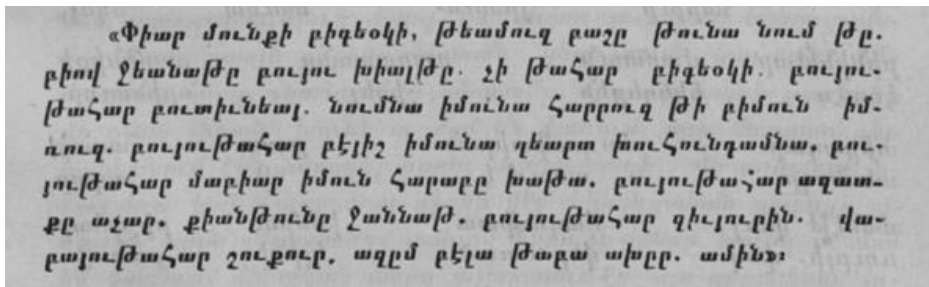 «Փիար մունքի բիզեօկի, թեամուզ բաշը թունա նում թը.
բիով ջեանաթը բուլու խիալթը. չի թահար բիզեօկի. բուլու-
թահար բուտիւնեալ. նումնա իմունա հարբուզ թի բիմուն իմ-
ռուզ. բուլութահար բէլիշ իմունա ղեարտ խուհունդամնա. բու-
լութահար մարիար իմուն հարաբը խաթա. բուլութահար ազատ-
քը աչար. քիանթունը ջաննաթ. բուլութահար գիւլուրին. վա-
բալութահար շուքուր. ազըմ բէլա թաբա ախըր. ամին»։